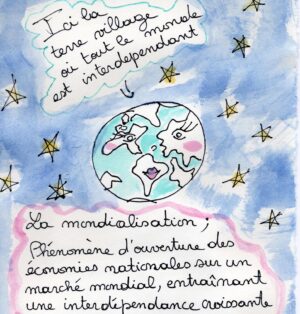 Ici la
terre village
où tout le monde
est interdépendant
La mondialisation ;
Phénomène d'ouverture des
économies nationales sur un
marché mondial, entraînant
une interdépendance croissante